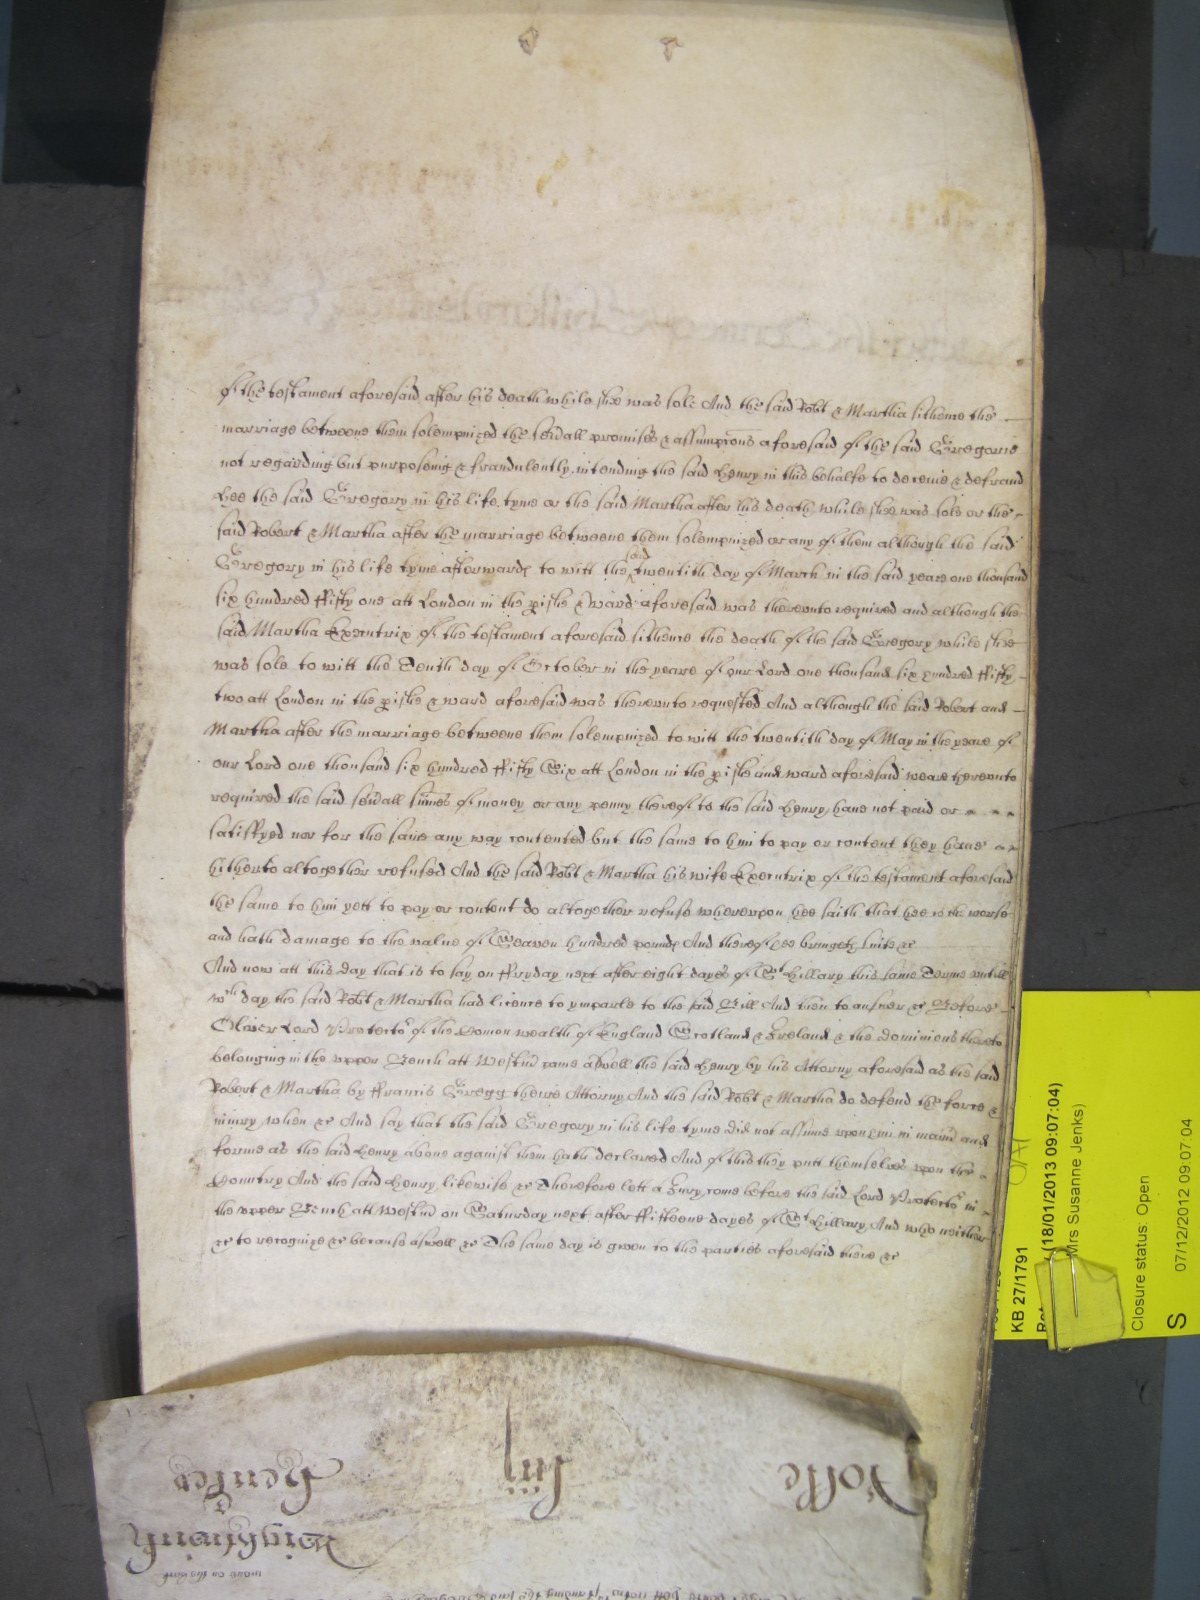 of the testament aforesaid after his death while shee was sole And the said Robt & Martha sithence the
marriage betweene them solempnized the sevall promises & assumpcons aforesaid of the said Gregorie
not regarding but purposeing & fraudulently intending the said Henry in this behalfe to deceive & defraud
hee the said Gregory in his life tyme or the said Martha after his death while shee was sole or the
said Robert & Martha after the marriage betweene them solempnized or any of them although the said
Gregory in his life tyme afterwards to witt the said twentith day of March in the said yeare one thousand
six hundred ffifty one att London in the pishe & ward aforesaid was thereunto required and although the
said Martha Executrix of the testament aforesaid sithence the death of the said Gregory while shee
was sole to witt the Tenth day of October in the yeare of our Lord one thousand six hundred ffifty
two att London in the pishe & ward aforesaid was thereunto requested And although the said Robert and
Martha after the marriage betweene them solempnized to witt the twentith day of May in the yeare of
our Lord one thousand six hundred ffifty Six att London in the pishe and ward aforesaid weare thereunto
required the said sevall sumes of money or any penny thereof to the said Henry have not paid or
satisfyed nor for the same any way contented but the same to him to pay or content they have
hitherto altogether refused And the said Robt & Martha his wife Executrix of the testament aforesaid
the same to him yett to pay or content do altogether refuse whereupon hee saith that hee is the worse
and hath damage to the value of Seaven hundred pounds And thereof hee bringeth suite &c
And now att this day that is to say on ffryday next after eight dayes of St Hillary this same Terme untill
wch day the said Robt & Martha had licence to imparle to the said Bill And then to answer &c Before
Oliver Lord Protector of the Comon wealth of England Scotland & Ireland & the dominions thereto
belonging in the upper Bench att Westm came aswell the said Henry by his Attorny aforesaid as the said
Robert & Martha by ffrancis Gregg theire Attorny And the said Robt & Martha do defend the force &
iniury when &c And say that the said Gregory in his life tyme did not assume upon him in maner and
forme as the said Henry above against them hath declared And of this they putt themselves upon the
Country And the said Henry likewise &c Therefore lett a Jury come before the said Lord Protector in
the upper Bench att Westm on Saturday next after ffifteene dayes of St Hillary And who neither
&c to recognize &c because aswell &c The same day is given to the parties aforesaid there &c
Rolle
iiij
Wightwick
&
Henley
KB 27/1791
(18/01/2013 09:07:04)
Mrs Susanne Jenks)
Closure status: Open
S
07/12/2012 09:07:04